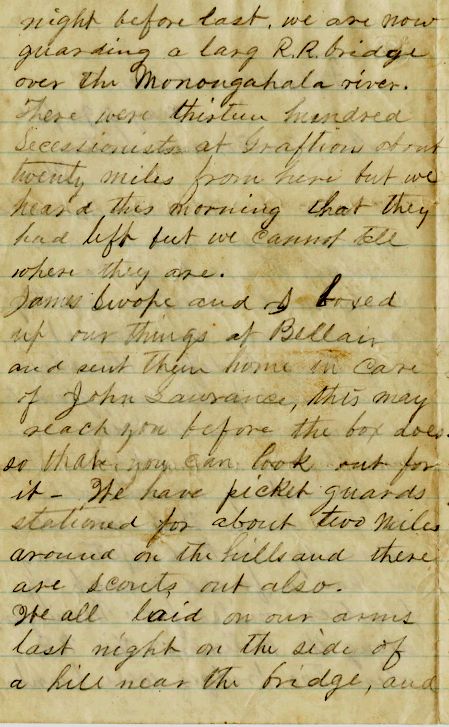 night before last. we are now
guarding a larg R.R. bridge
over the Monongahala river.
There were thirteen hundred
Secessionists at Graftion about
twenty miles from here but we
heard this morning that they
had left but we cannot tell
where they are.
James Swope and I boxed
up our things at Bellair
and sent them home in care
of John Lawrance, this may
reach you before the box does.
so that you can look out for
it - We have picket guards
stationed for about two miles
around on the hills and there
are scouts out also.
We all laid on our arms
last night on the side of
a hill near the bridge, and